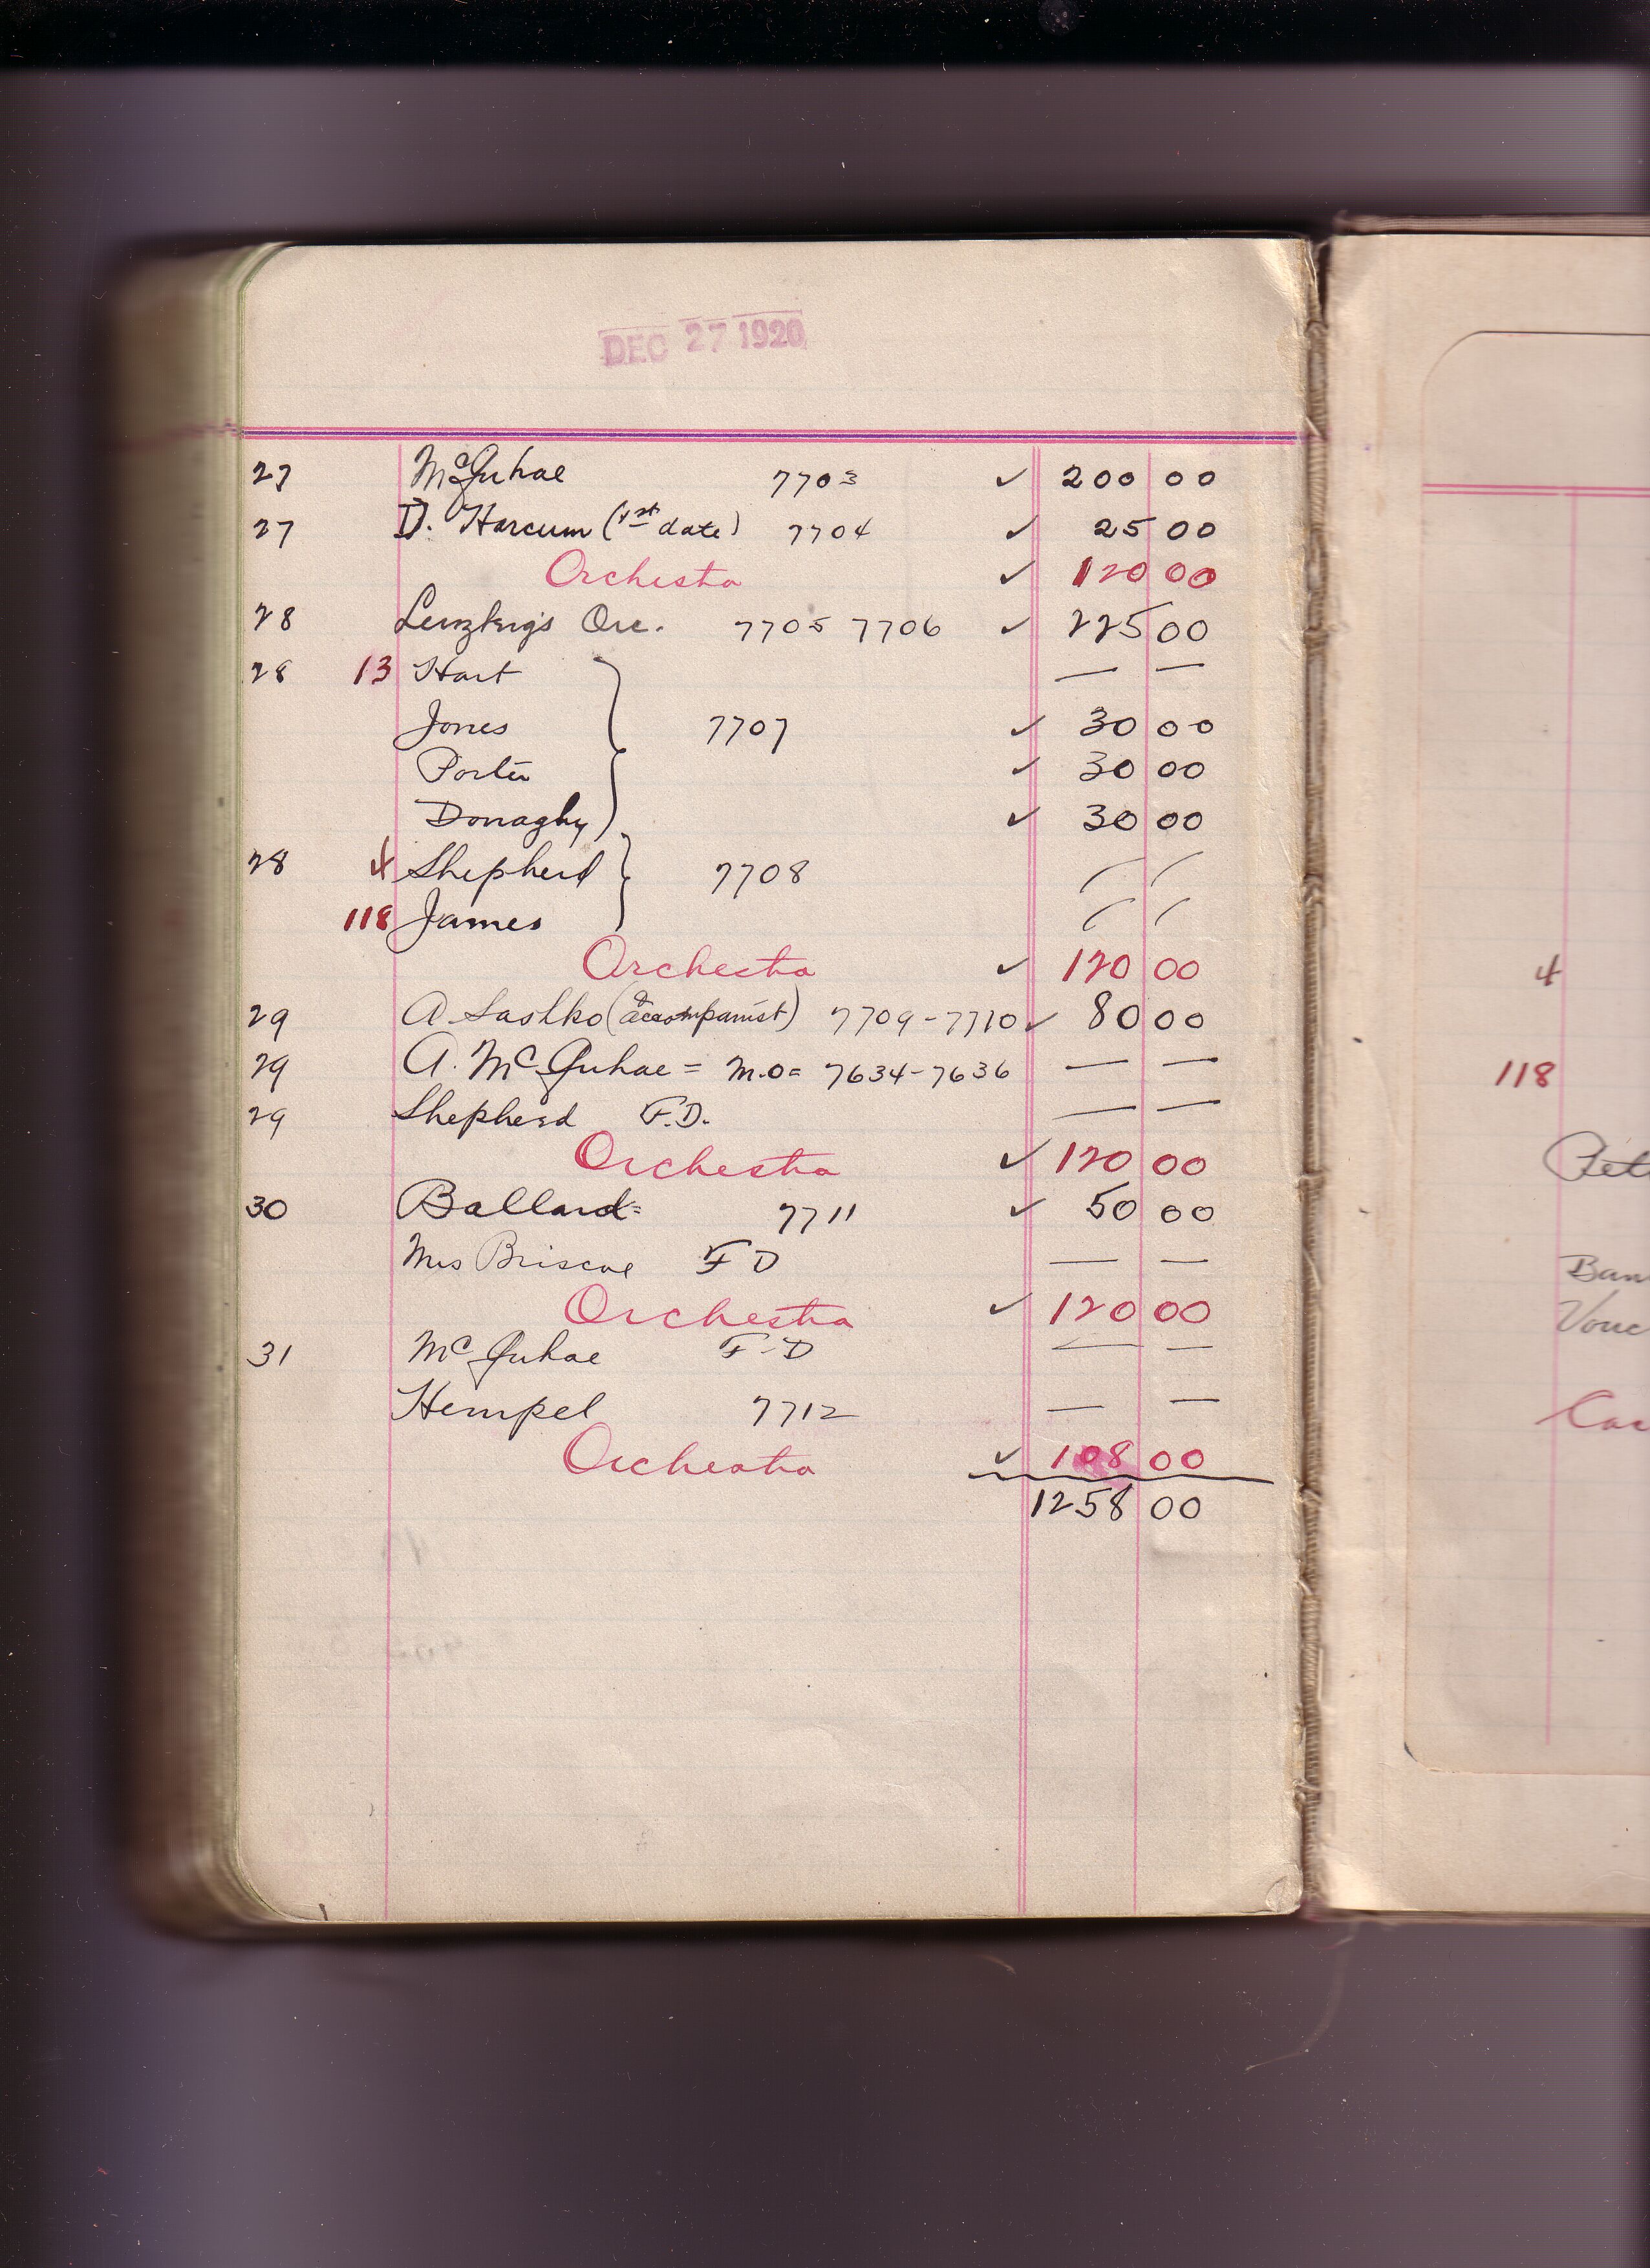 DEC 27 1920
27 McGuhae 7703 ✓ 200 00
27 D. Harcum (1st date) 7704 ✓ 25 00
Orchestra ✓ 120 00
28 Lenzberg's Orc. 7705 7706 ✓ 225 00
28 13 Hart — —
Jones 7707 ✓ 30 00
Porter ✓ 30 00
Donaghy ✓ 30 00
28 4 Shepherd 7708
118 James
Orchestra ✓ 120 00
29 A. Sashko (accompanist) 7709-7710 ✓ 80 00
29 A. McGuhae = M.O= 7634-7636 — —
29 Shepherd F.D. — —
Orchestra ✓ 120 00
30 Ballard= 7711 ✓ 50 00
Mrs Briscoe F D — —
Orchestra ✓ 120 00
31 McGuhae F-D — —
Hempel 7712 — —
Orchestra ✓ 108 00
1258 00
4
118
Ban
Vouc